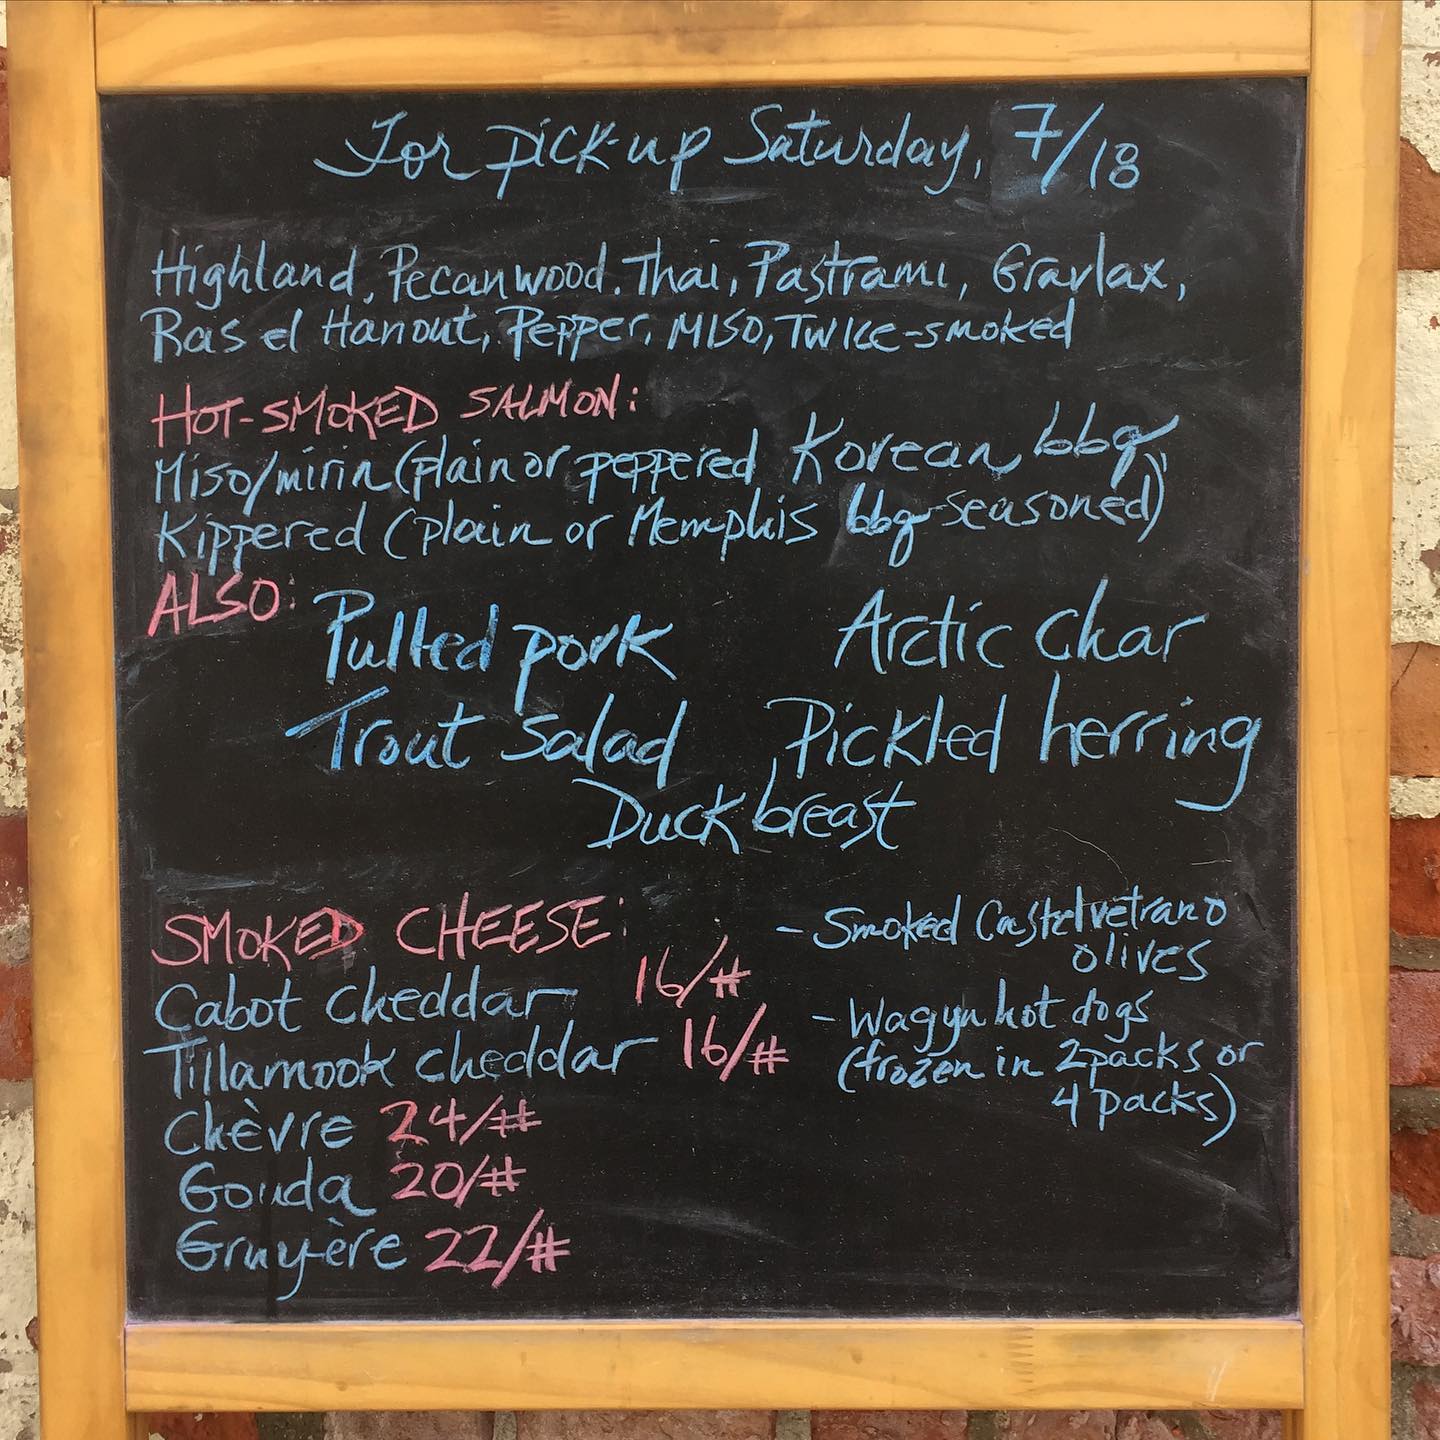 For pick-up Saturday, 7/18
Highland, Pecanwood, Thai, Pastrami, Gravlax,
Ras el Hanout, Pepper, Miso, Twice-smoked
HOT-SMOKED SALMON:
Miso/mirin (plain or peppered Korean bbq
Kippered (plain or Memphis bbq-seasoned)
ALSO:
Pulled pork Arctic char
Trout salad Pickled herring
Duck breast
SMOKED CHEESE:
Cabot cheddar 16/#
Tillamook cheddar 16/#
Chèvre 24/#
Gouda 20/#
Gruyère 22/#
- Smoked Castelvetrano
olives
- Wagyu hot dogs
(frozen in 2packs or
4 packs)